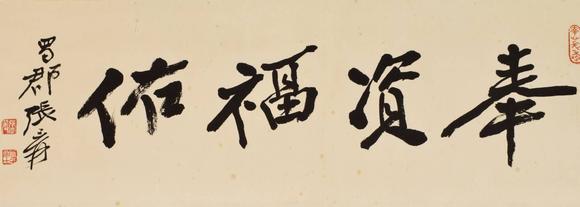 奉資福佑
蜀郡張爰